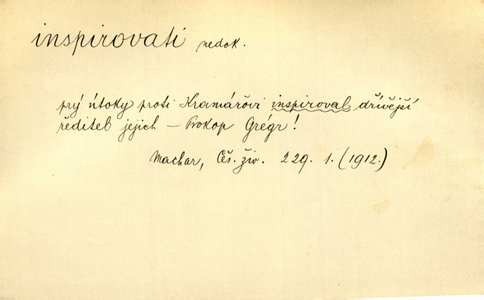 inspirovati nedok.
prý útoky proti Kramářovi inspiroval dřívější
ředitel jejich — Prokop Grégr!
Machar, Čes. živ. 229. 1. (1912.)